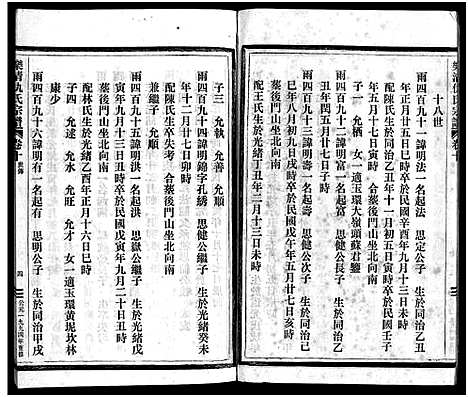 十八世
雨四百九十一諱明法一名起法 思定公子 生於同治乙
丑年正月十五日辰時卒於民國辛酉年九月十三日未時
配陳氏生於同治乙丑年十一月初五日寅時卒於民國壬子
年五月十七日寅時 合葬後門山坐北向南
子一 允橋 女一適玉環大嶺頭蘇君鑒
雨四百九十二諱明富一名起富 思健公長子 生於同治乙
丑年閏五月廿七日戌時
雨四百九十三諱明壽一名起壽 思健公次子 生於同治己
巳年八月初九日戌時卒於民國戊午年五月廿七日亥時
配王氏生於光緒丁丑年二月十三日未時
子三 允執 允善 允順
雨四百九十四諱明錦字孔綉 思健公繼子 生於光緒癸未
年十二月廿七日卯時
配陳氏生卒失考 合葬後門山坐北向南
兼繼子 允順
雨四百九十五諱明洪一名起洪 思嶽公繼子 生於光緒戊
寅年九月十三日丑時卒於民國戊寅年九月二十日丑時
配林氏生於光緒乙酉年正月十六日巳時
合葬後門山坐北向南
子四 允述 允水 允旺 允才 女一適玉環黃坭坎林
康少
雨四百九十六諱明有一名起有 思明公子 生於同治甲戌
樂清仇氏宗譜 卷十
四